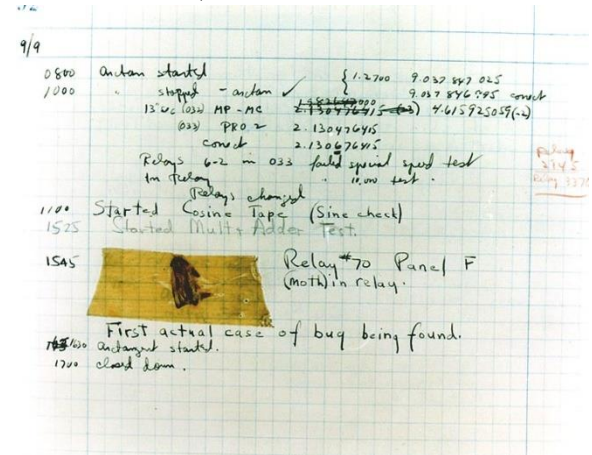 9/9
0800 antan started { 1.2700 9.037 847 025
1000 " stopped - antan ✓ 9.037 846 995 correct
13"uc (032) MP-MC 2.130476415 (-3) 4.615925059(-2)
(033) PRO 2 2.130476415
correct 2.130676415
Relays 6-2 in 033 failed special speed test
In Relay " 10,000 test.
Relay
2145
Relay 3370
Relays changed
1100 Started Cosine Tape (Sine check)
1525 Started Mult+Adder Test.
1545 Relay #70 Panel F
(moth) in relay.
First actual case of bug being found.
1630 antangent started.
1700 closed down.